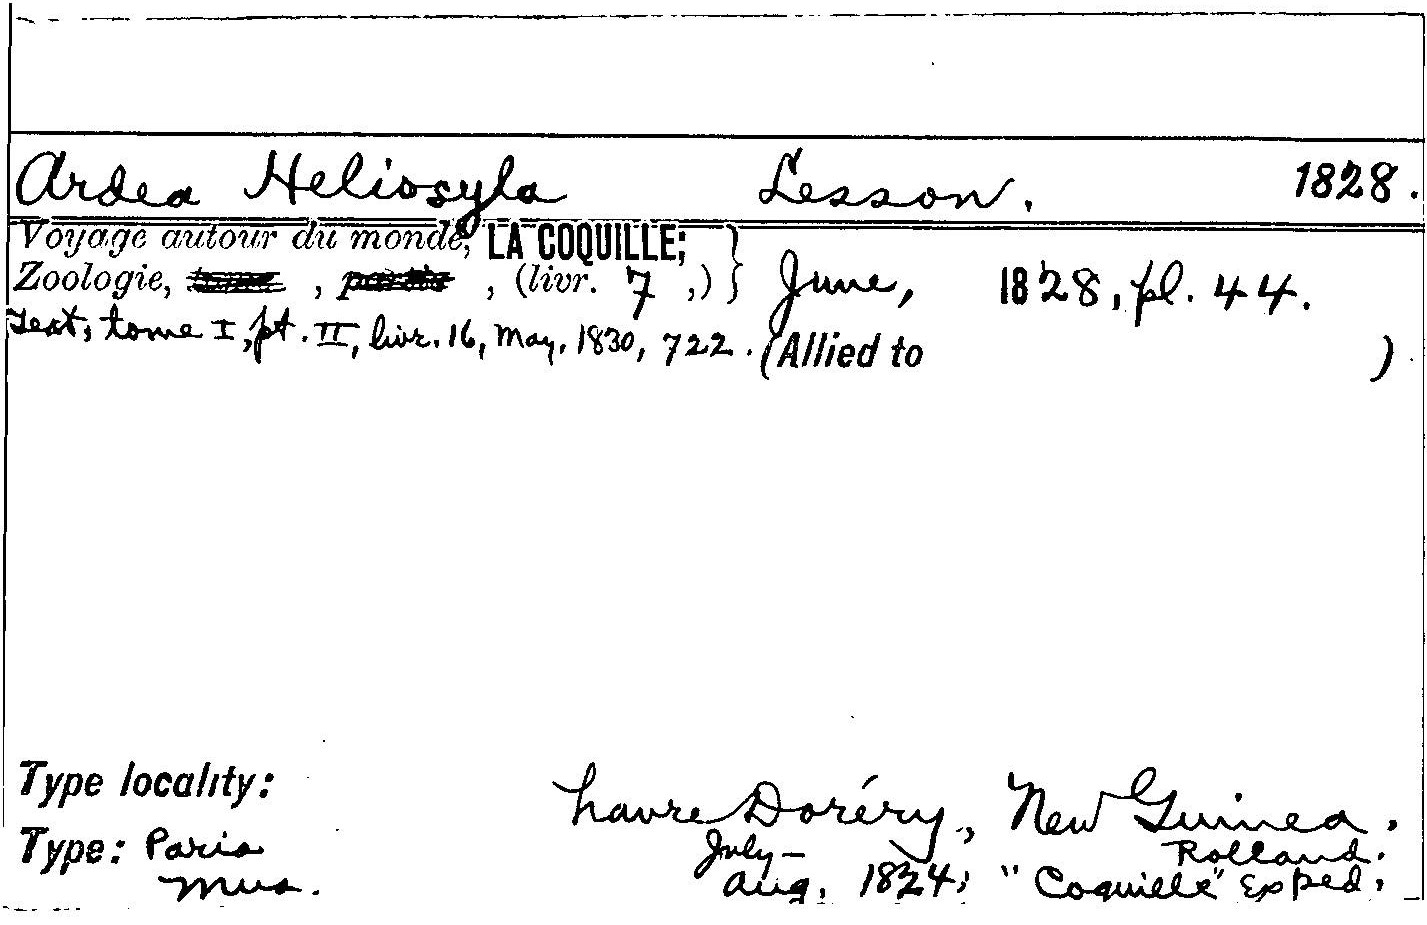 Ardea Heliosyla Lesson. 1828.
Voyage autour du monde, LA COQUILLE;
Zoologie, tome , partie , (livr. 7 ,) } June, 1828, pl. 44.
Text, tome I, pt. II, livr. 16, May, 1830, 722. (Allied to )
Type locality: havre Doréry, New Guinea.
Type: Paris Mus. July- Aug. 1824; Rolland. "Coquille" Exped.